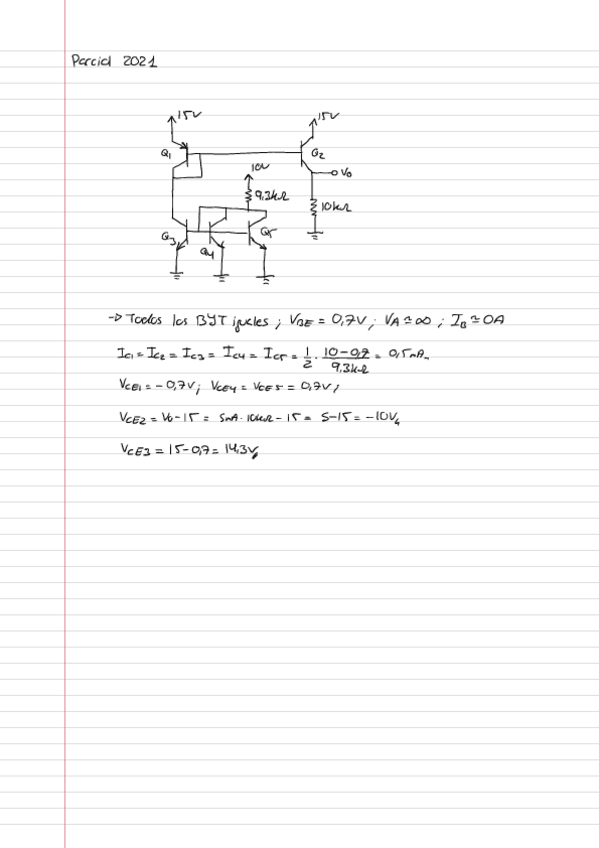 Parcial 2021
15V
15V
Q1
Q2
10V
Vo
9,3kΩ
10kΩ
Q3
Q4
Q5
→ Todos los BJT iguales ; VBE = 0,7V ; VA ≃ ∞ ; IB ≃ 0A
IC1 = IC2 = IC3 = IC4 = IC5 = 1/2 · (10-0,7)/9,3kΩ = 0,5mA
VCE1 = -0,7V ; VCE4 = VCE5 = 0,7V ;
VCE2 = Vo - 15 = 5mA · 10kΩ - 15 = 5 - 15 = -10V
VCE3 = 15 - 0,7 = 14,3V